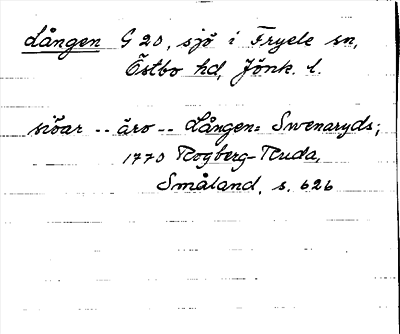 Lången G 20, sjö i Fryele sn,
Östbo hd, Jönk. l.
siöar -- äro -- Lången= Swenaryds;
1770 Rogberg-Ruda,
Småland, s. 626